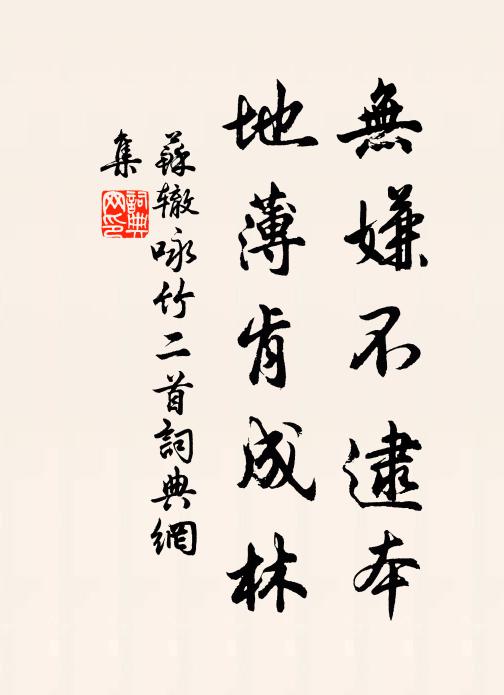 無嫌不逮本
地薄肯成林
蘇辙咏竹二首詞典網
集
詞典
网印